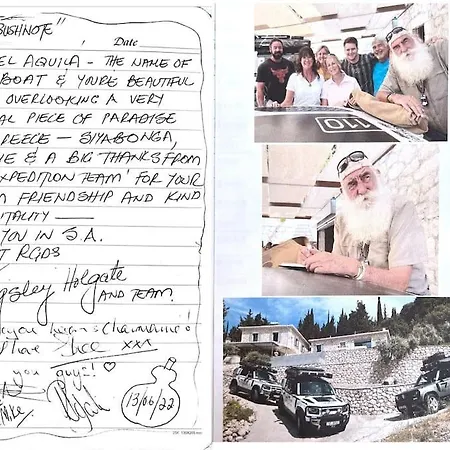 BUSHNOTE"
Date
EL AQUILA - THE NAME OF
BOAT & YOURE BEAUTIFUL
OVERLOOKING A VERY
AL PIECE OF PARADISE
REECE - SIYABONGA,
E & A BIG THANKS FROM
XPEDITION TEAM' FOR YOUR
M FRIENDSHIP AND KIND
ITALITY -
YOU IN S.A.
T RGDS
gsley Holgate
AND TEAM.
you
xxx
you guys!
13/06/22
110